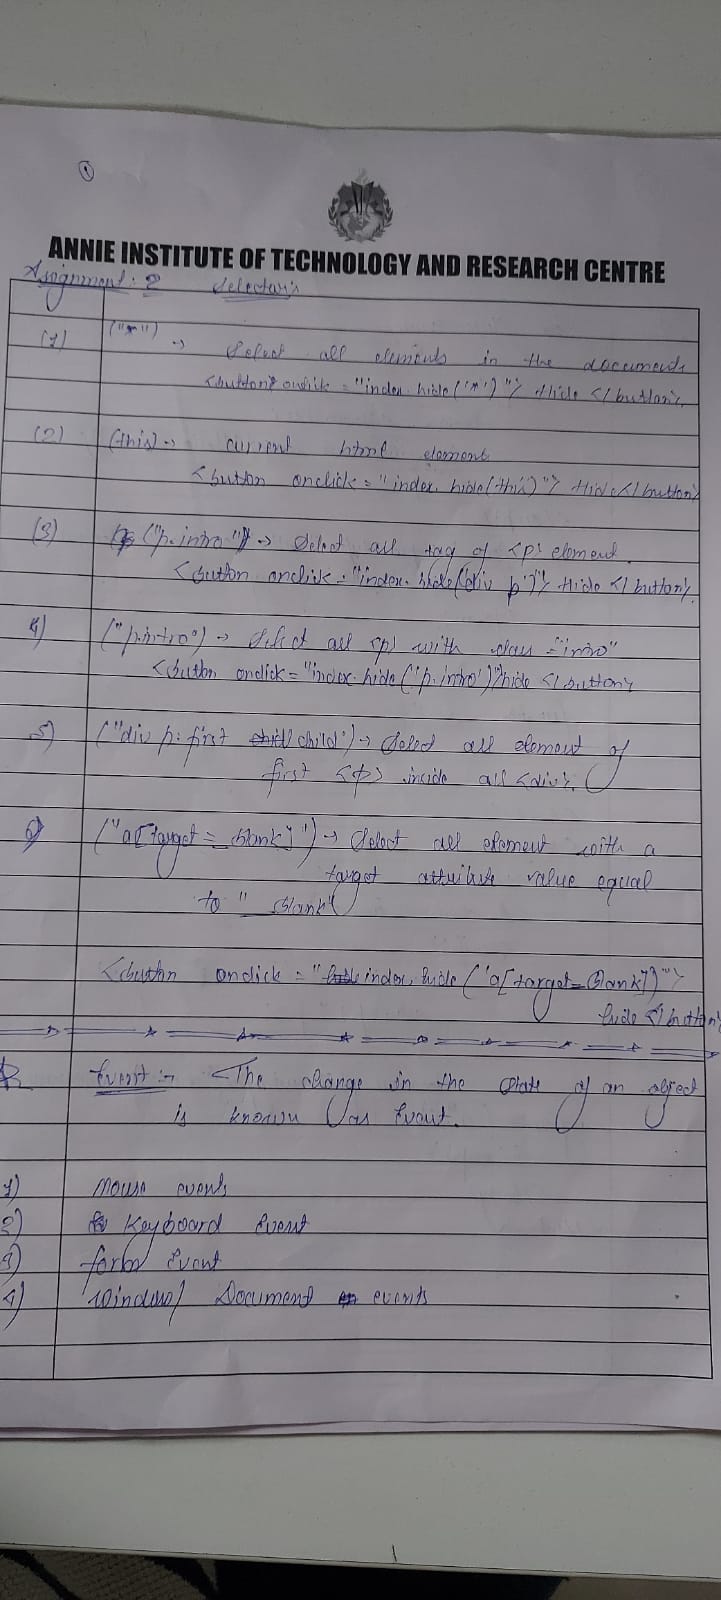 1
ANNIE INSTITUTE OF TECHNOLOGY AND RESEARCH CENTRE
Assignment: 2 Selectors
(1) ("*") → Select all elements in the documents
<button> onclick = "index.hide('*')"> Hide </button>
(2) (this) → current html element
<button onclick = "index.hide(this)"> Hide </button>
(3) ("p.intro") → Select all tag of <p> element
<button onclick = "index.hide('div p')"> Hide </button>
4) ("p.intro") → Select all <p> with class = "intro"
<button onclick = "index.hide('p.intro')"> hide </button>
5) ("div p: first child") → Select all element of
first <p> inside all <div>.
6) ("a[target = _blank]") → Select all element with a
target attribute value equal
to "_blank"
<button onclick = " index.hide ('a[target=_Blank])">
hide </button>
Event :- The change in the State of an object
is known as Event.
1) Mouse events
2) Keyboard Event
3) form Event
4) Window/ Document events